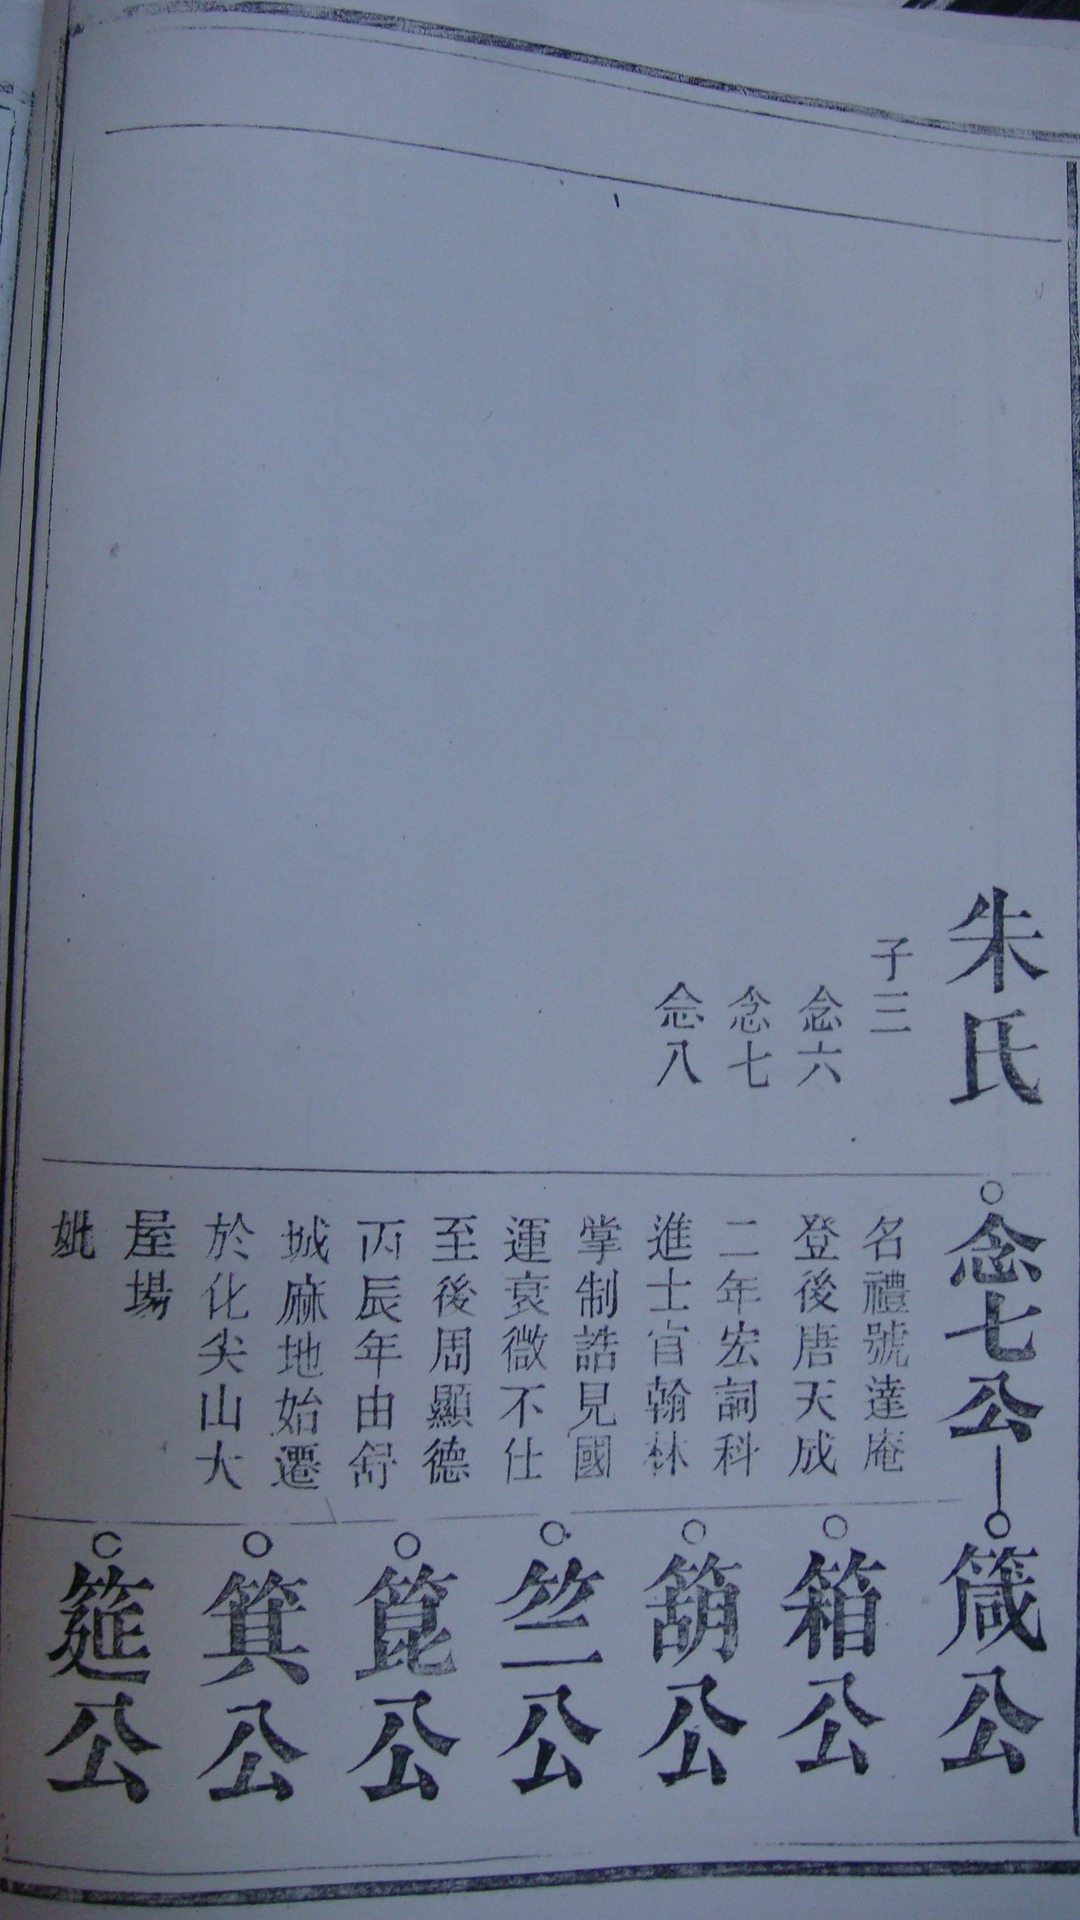 朱氏
子三
念六
念七
念八
念七公
名禮號達庵
登後唐天成
二年宏詞科
進士官翰林
掌制誥見國
運衰微不仕
至後周顯德
丙辰年由舒
城麻地始遷
於化尖山大
屋場
妣
箴公
箱公
箶公
竺公
箟公
箕公
筵公